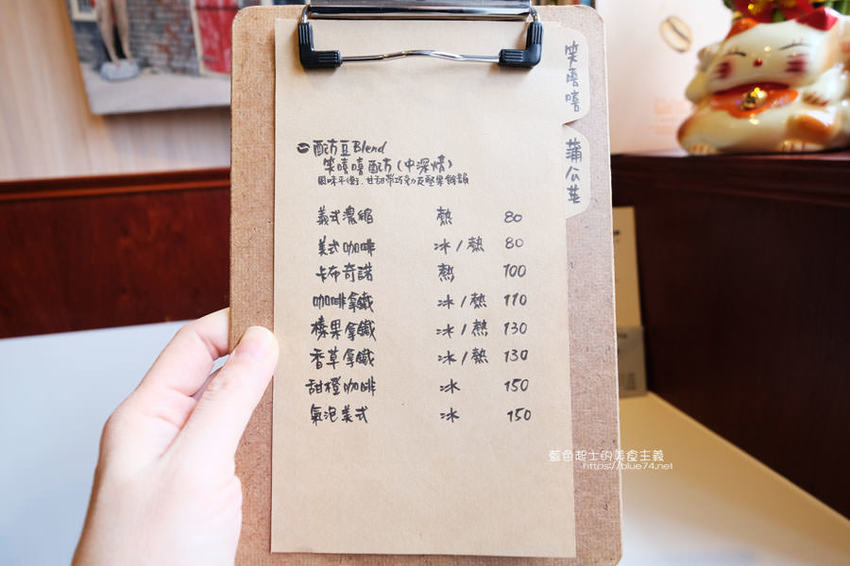 笑嘻嘻
蒲公英
配方豆 Blend
笑嘻嘻配方 (中深焙)
風味平衡.甘甜帶巧克力及堅果餘韻
義式濃縮 熱 80
美式咖啡 冰/熱 80
卡布奇諾 熱 100
咖啡拿鐵 冰/熱 110
榛果拿鐵 冰/熱 130
香草拿鐵 冰/熱 130
甜橙咖啡 冰 150
氣泡美式 冰 150
藍色起士的美食主義
https://blue74.net